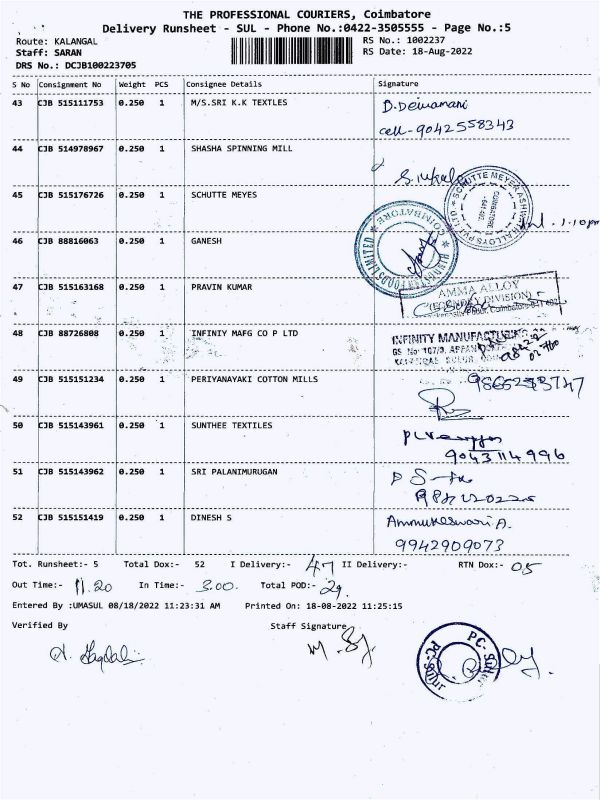 THE PROFESSIONAL COURIERS, Coimbatore
Delivery Runsheet - SUL - Phone No.:0422-3505555 - Page No.:5
Route: KALANGAL
RS No.: 1002237
Staff: SARAN
RS Date: 18-Aug-2022
DRS No.: DCJB100223705
S No Consignment No Weight PCS Consignee Details Signature
43 CJB 515111753 0.250 1 M/S.SRI K.K TEXTLES D.Deivamani
cell-9042558343
44 CJB 514978967 0.250 1 SHASHA SPINNING MILL
45 CJB 515176726 0.250 1 SCHUTTE MEYES
1.10pm
46 CJB 88816063 0.250 1 GANESH
COIMBATORE
47 CJB 515163168 0.250 1 PRAVIN KUMAR
AMMA ALLOY
48 CJB 88726808 0.250 1 INFINIY MAFG CO P LTD
INFINITY MANUFACTURING
49 CJB 515151234 0.250 1 PERIYANAYAKI COTTON MILLS
50 CJB 515143961 0.250 1 SUNTHEE TEXTILES
9043114996
51 CJB 515143962 0.250 1 SRI PALANIMURUGAN
52 CJB 515151419 0.250 1 DINESH S
9942909073
Tot. Runsheet:- 5 Total Dox:- 52 I Delivery:- 47 II Delivery:- RTN Dox:- 05
Out Time:- 11.20 In Time:- 3.00. Total POD:- 29
Entered By :UMASUL 08/18/2022 11:23:31 AM Printed On: 18-08-2022 11:25:15
Verified By Staff Signature
PC-Sulur
PC-Sulur